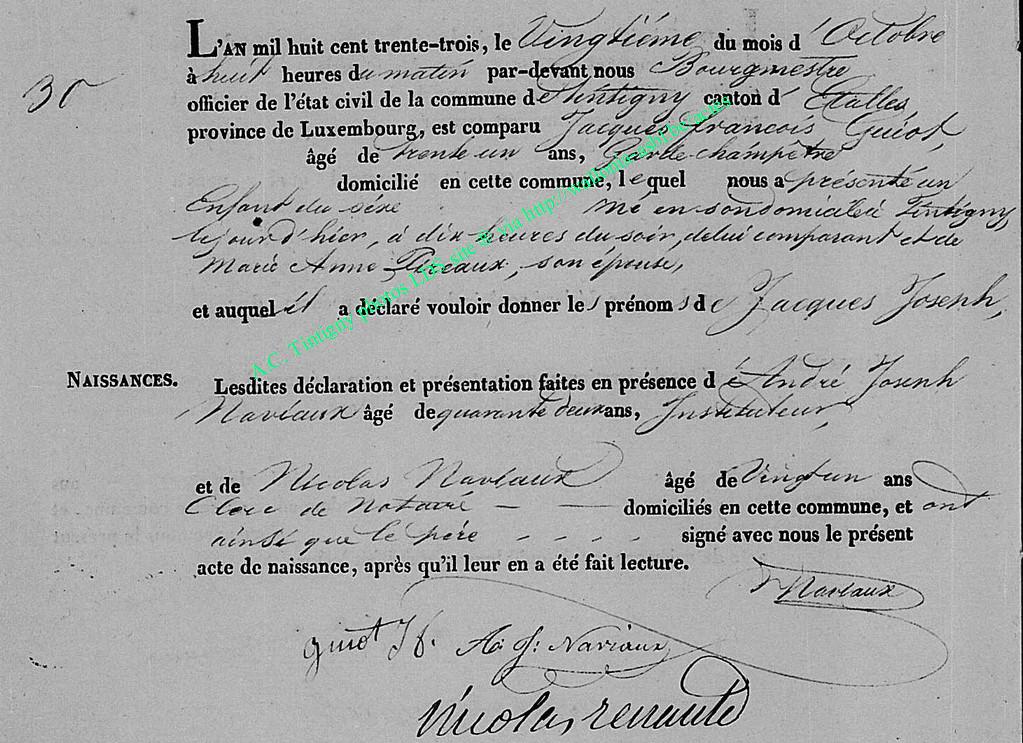 30
L'AN mil huit cent trente-trois, le Vingtiéme du mois d'Octobre
à huit heures du matin par-devant nous Bourgmestre
officier de l'état civil de la commune de Tintigny canton d'Etalle,
province de Luxembourg, est comparu Jacques François Guiot,
âgé de trente un ans, Garde champêtre
domicilié en cette commune, lequel nous a présenté un
Enfant du sexe né en son domicile à Tintigny,
le jour d'hier, à dix heures du soir, de lui comparant et de
Marie Anne son épouse,
et auquel il a déclaré vouloir donner les prénoms de Jacques Joseph,
NAISSANCES. Lesdites déclaration et présentation faites en présence d'André Joseph
Naviaux âgé de quarante deux ans, Instituteur,
et de Nicolas Naviaux âgé de Vingt un ans
Clerc de Notaire - - domiciliés en cette commune, et ont
ainsi que le père - - - - signé avec nous le présent
acte de naissance, après qu'il leur en a été fait lecture.
Naviaux
guiot J f. A: J: Naviaux
Nicolas renauld
A.C. Tintigny photos LDS site © via http://